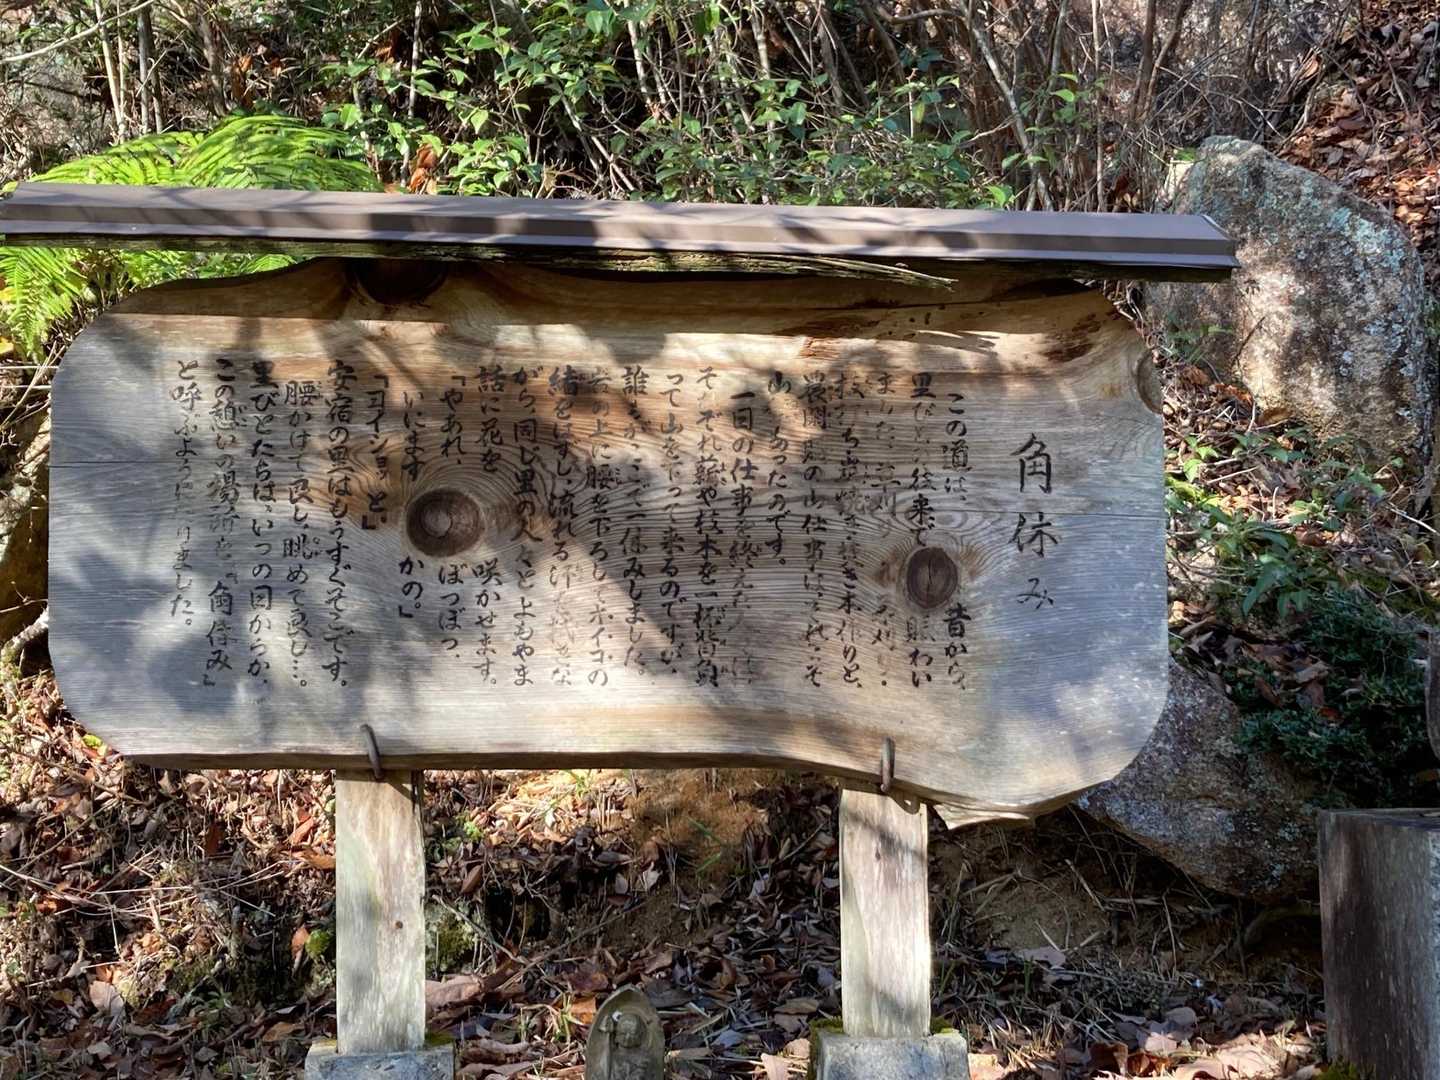 角休み
この道は、昔から、
里びとの往来で賑わい
ました。草刈り
枝打ち炭焼き
農閑期の山仕事は、それこそ
山 あったのです。
一日の仕事を終えた
それぞれ薪や枝木を一杯背負
って山を下って来るのですが、
誰もが、ここで一休みしました。
岩の上に腰を下ろしてホイコの
緒をはずし、流れる汗を拭きな
がら、同じ里の人々とよもやま
話に花を咲かせます。
「やあれ、ぼつぼつ、
いにますかの。」
「ヨイショッと。」
安宿の里はもうすぐそこです。
腰かけて良し、眺めて良し…。
里びとたちは、いつの日からか、
この憩いの場所を、「角休み」
と呼ぶようになりました。